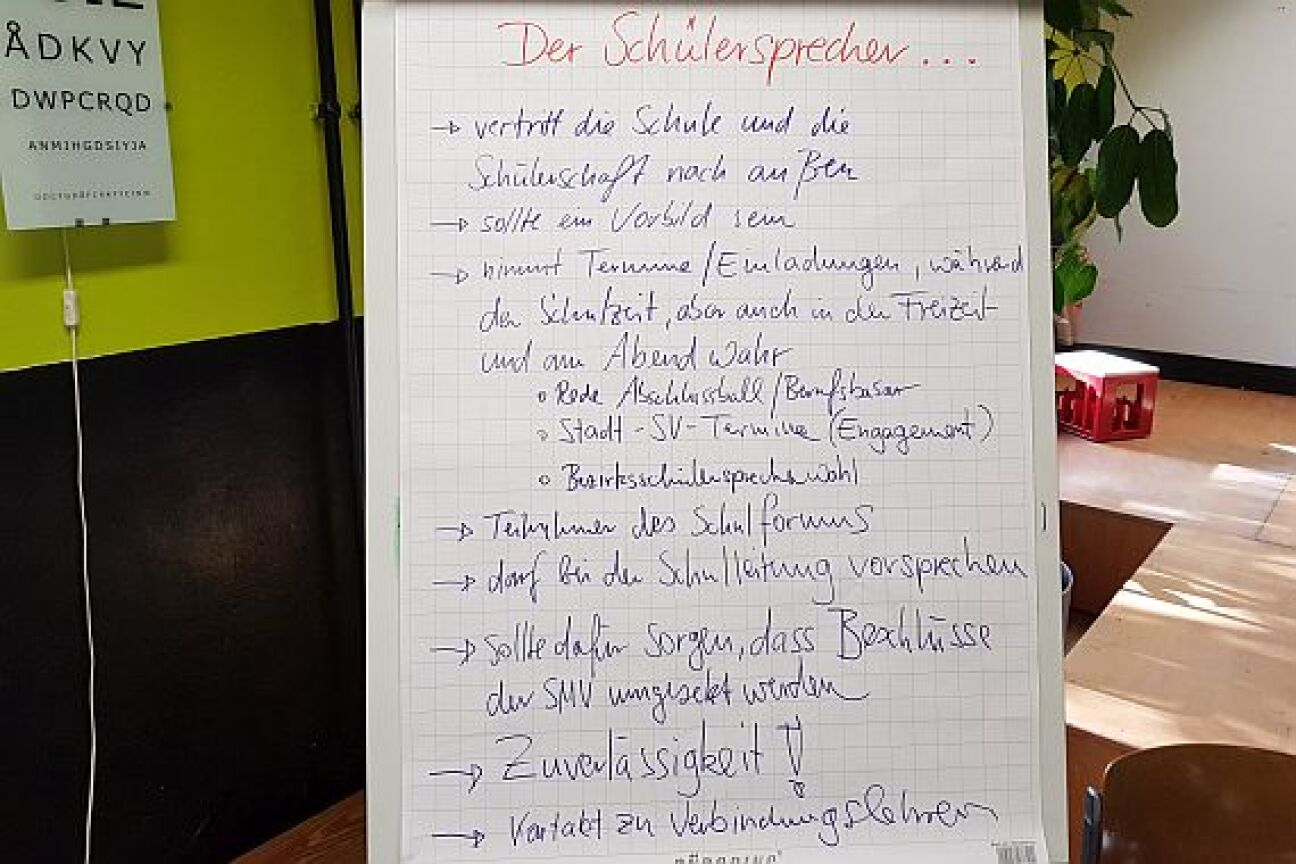 ÅDKVY
DWPCRQD
ANMIHGDSIYJA
Der Schülersprecher...
→ vertritt die Schule und die
Schülerschaft nach außen
→ sollte ein Vorbild sein
→ nimmt Termine/Einladungen, während
der Schulzeit, aber auch in der Freizeit
und am Abend wahr
o Rede Abschlussball/Berufsbasar
o Stadt-SV-Termine (Engagement)
o Bezirksschülersprecherwahl
→ Teilnehmer des Schulforums
→ darf bei der Schulleitung vorsprechen
→ sollte dafür sorgen, dass Beschlüsse
der SMV umgesetzt werden
→ Zuverlässigkeit!
→ Kontakt zu Verbindungslehrern